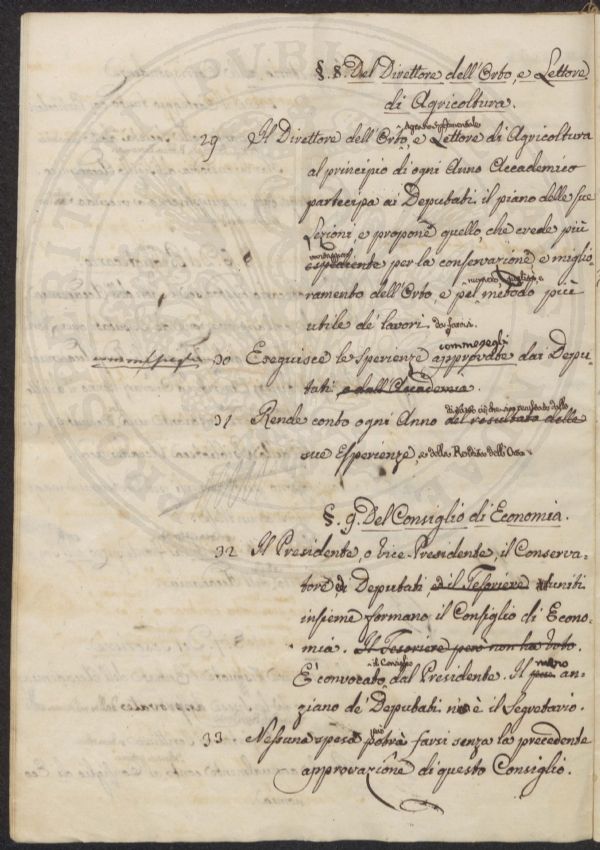 §. 8. Del Direttore dell'Orto, e Lettore
di Agricoltura.
29 Il Direttore dell'Orto Agrario sperimentale, e Lettore di Agricoltura
al principio di ogni Anno Accademico
partecipa ai Deputati il piano delle sue
Lezioni, e propone quello, che crede più
vantaggioso espediente per la conservazione, e miglio-
ramento dell'Orto, e pel metodo più
utile de' lavori da farsi.
30 Eseguisce le sperienze commessegli approvate dai Depu-
tati e dall'Accademia.
31 Rende conto ogni Anno del resultato delle
sue Esperienze, e della Rendita dell'Orto.
§. 9. Del Consiglio di Economia.
32 Il Presidente, o Vice-Presidente, il Conserva-
tore, i Deputati, ed il Tesoriere riuniti
insieme formano il Consiglio di Econo-
mia. Il Tesoriere però non ha Voto.
È convocato il Consiglio dal Presidente. Il meno an-
ziano de' Deputati n'è il Segretario.
33 Nessuna spesa può potrà farsi senza la precedente
approvazione di questo Consiglio.